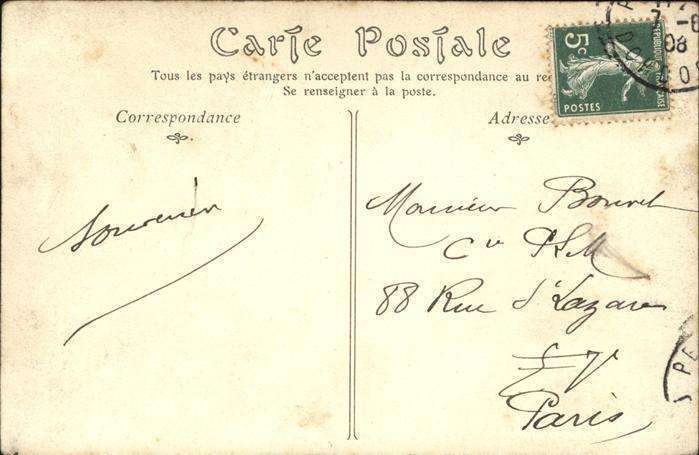 Carte Postale
Tous les pays étrangers n'acceptent pas la correspondance au re
Se renseigner à la poste.
Correspondance
Adresse
5c
POSTES
08
Souvenir
Monsieur Bouvet
Cie PLM
88 Rue St Lazare
EV
Paris
PE